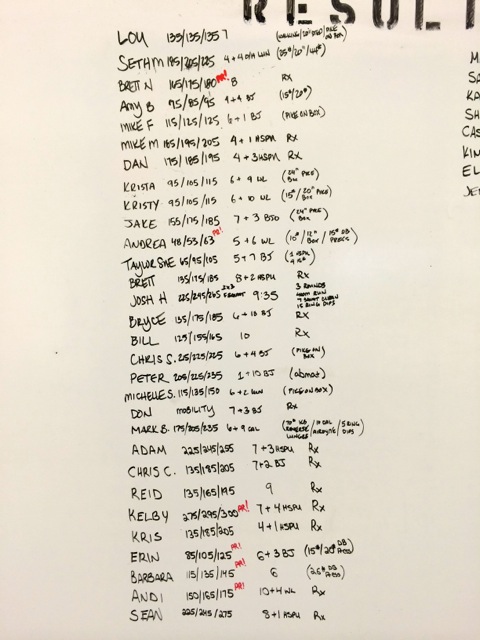 RESULT
LOU 135/135/135 7
SETH M 185/205/225 4+4 (25#/20"/44#)
BRETT N 165/175/180 PR! 8 Rx
AMY B 75/85/95 4+4 BJ (15#/20")
MIKE F 115/125/125 6+1 BJ (PIKE ON BOX)
MIKE M 185/195/205 4+1 HSPU Rx
DAN 175/185/195 4+3 HSPU Rx
KRISTA 95/105/115 6+9 WL (24" PIKE BOX)
KRISTY 95/105/115 6+10 WL (15#/20" PIKE BOX)
JAKE 155/175/185 7+3 BJO (24" PIKE BOX)
ANDREA 48/53/63 PR! 5+6 WL (10#/12" BOX/15# DB PRESS)
TAYLOR SUE 65/95/105 5+7 BJ
BRETT 135/175/185 8+2 HSPU Rx
JOSH H 225/245/265 9:35 3 ROUNDS 400M RUN 7 SQUAT CLEAN 15 RING DIPS
BRYCE 135/175/185 6+13 BJ Rx
BILL 125/155/165 10 Rx
CHRIS S. 215/225/225 6+4 BJ (PIKE ON BOX)
PETER 205/225/235 1+10 BJ (abmat)
MICHELLE S. 115/135/150 6+2 (PIKE ON BOX)
DON MOBILITY 7+3 BJ Rx
MARK B. 175/205/235 6+9 CAL (70# KB REVERSE LUNGES/11 CAL AIRDYNE/5 RING DIPS)
ADAM 225/245/255 7+3 HSPU Rx
CHRIS C. 135/185/205 7+2 BJ Rx
REID 135/165/195 9 Rx
KELBY 275/295/300 PR! 7+4 HSPU Rx
KRIS 135/185/205 4+1 HSPU Rx
ERIN 85/105/125 PR! 6+3 BJ (15#/20# DB Press)
BARBARA 115/135/145 PR! 6 (25# DB Press)
ANDI 150/165/175 PR! 10+4 WL Rx
SEAN 225/245/275 8+1 HSPU Rx
M
SA
KA
SH
CAS
KIN
EL
JE